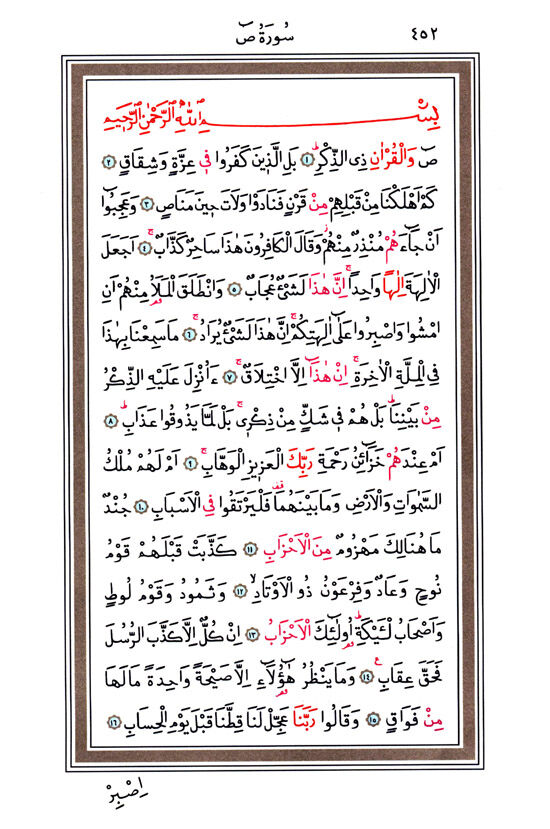 ٤٥٢ سُورَةُ صٓ
بِسْمِ اللّٰهِ الرَّحْمٰنِ الرَّحِيمِ
صٓ وَالْقُرْاٰنِ ذِى الذِّكْرِۜ ﴿١﴾ بَلِ الَّذ۪ينَ كَفَرُوا ف۪ى عِزَّةٍ وَشِقَاقٍ ﴿٢﴾
كَمْ اَهْلَكْنَا مِنْ قَبْلِهِمْ مِنْ قَرْنٍ فَنَادَوْا وَلَاتَ ح۪ينَ مَنَاصٍ ﴿٣﴾ وَعَجِبُٓوا
اَنْ جَٓاءَهُمْ مُنْذِرٌ مِنْهُمْۘ وَقَالَ الْكَافِرُونَ هٰذَا سَاحِرٌ كَذَّابٌۚ ﴿٤﴾ اَجَعَلَ
الْاٰلِهَةَ اِلٰهًا وَاحِدًاۚ اِنَّ هٰذَا لَشَىْءٌ عُجَابٌ ﴿٥﴾ وَانْطَلَقَ الْمَلَاُ مِنْهُمْ اَنِ
امْشُوا وَاصْبِرُوا عَلٰٓى اٰلِهَتِكُمْۚ اِنَّ هٰذَا لَشَىْءٌ يُرَادُۚ ﴿٦﴾ مَا سَمِعْنَا بِهٰذَا
فِى الْمِلَّةِ الْاٰخِرَةِۚ اِنْ هٰذَٓا اِلَّا اخْتِلَاقٌۚ ﴿٧﴾ ءَاُنْزِلَ عَلَيْهِ الذِّكْرُ
مِنْ بَيْنِنَاۜ بَلْ هُمْ ف۪ى شَكٍّ مِنْ ذِكْر۪ىۚ بَلْ لَمَّا يَذُوقُوا عَذَابِۜ ﴿٨﴾
اَمْ عِنْدَهُمْ خَزَٓائِنُ رَحْمَةِ رَبِّكَ الْعَز۪يزِ الْوَهَّابِۚ ﴿٩﴾ اَمْ لَهُمْ مُلْكُ
السَّمٰوَاتِ وَالْاَرْضِ وَمَا بَيْنَهُمَا۠ فَلْيَرْتَقُوا فِى الْاَسْبَابِ ﴿١٠﴾ جُنْدٌ
مَا هُنَالِكَ مَهْزُومٌ مِنَ الْاَحْزَابِ ﴿١١﴾ كَذَّبَتْ قَبْلَهُمْ قَوْمُ
نُوحٍ وَعَادٌ وَفِرْعَوْنُ ذُو الْاَوْتَادِۙ ﴿١٢﴾ وَثَمُودُ وَقَوْمُ لُوطٍ
وَاَصْحَابُ لْـَٔيْكَةِۜ اُو۬لٰٓئِكَ الْاَحْزَابُ ﴿١٣﴾ اِنْ كُلٌّ اِلَّا كَذَّبَ الرُّسُلَ
فَحَقَّ عِقَابِ۟ ﴿١٤﴾ وَمَا يَنْظُرُ هٰٓؤُ۬لَٓاءِ اِلَّا صَيْحَةً وَاحِدَةً مَا لَهَا
مِنْ فَوَاقٍ ﴿١٥﴾ وَقَالُوا رَبَّنَا عَجِّلْ لَنَا قِطَّنَا قَبْلَ يَوْمِ الْحِسَابِ ﴿١٦﴾
اِصْبِرْ